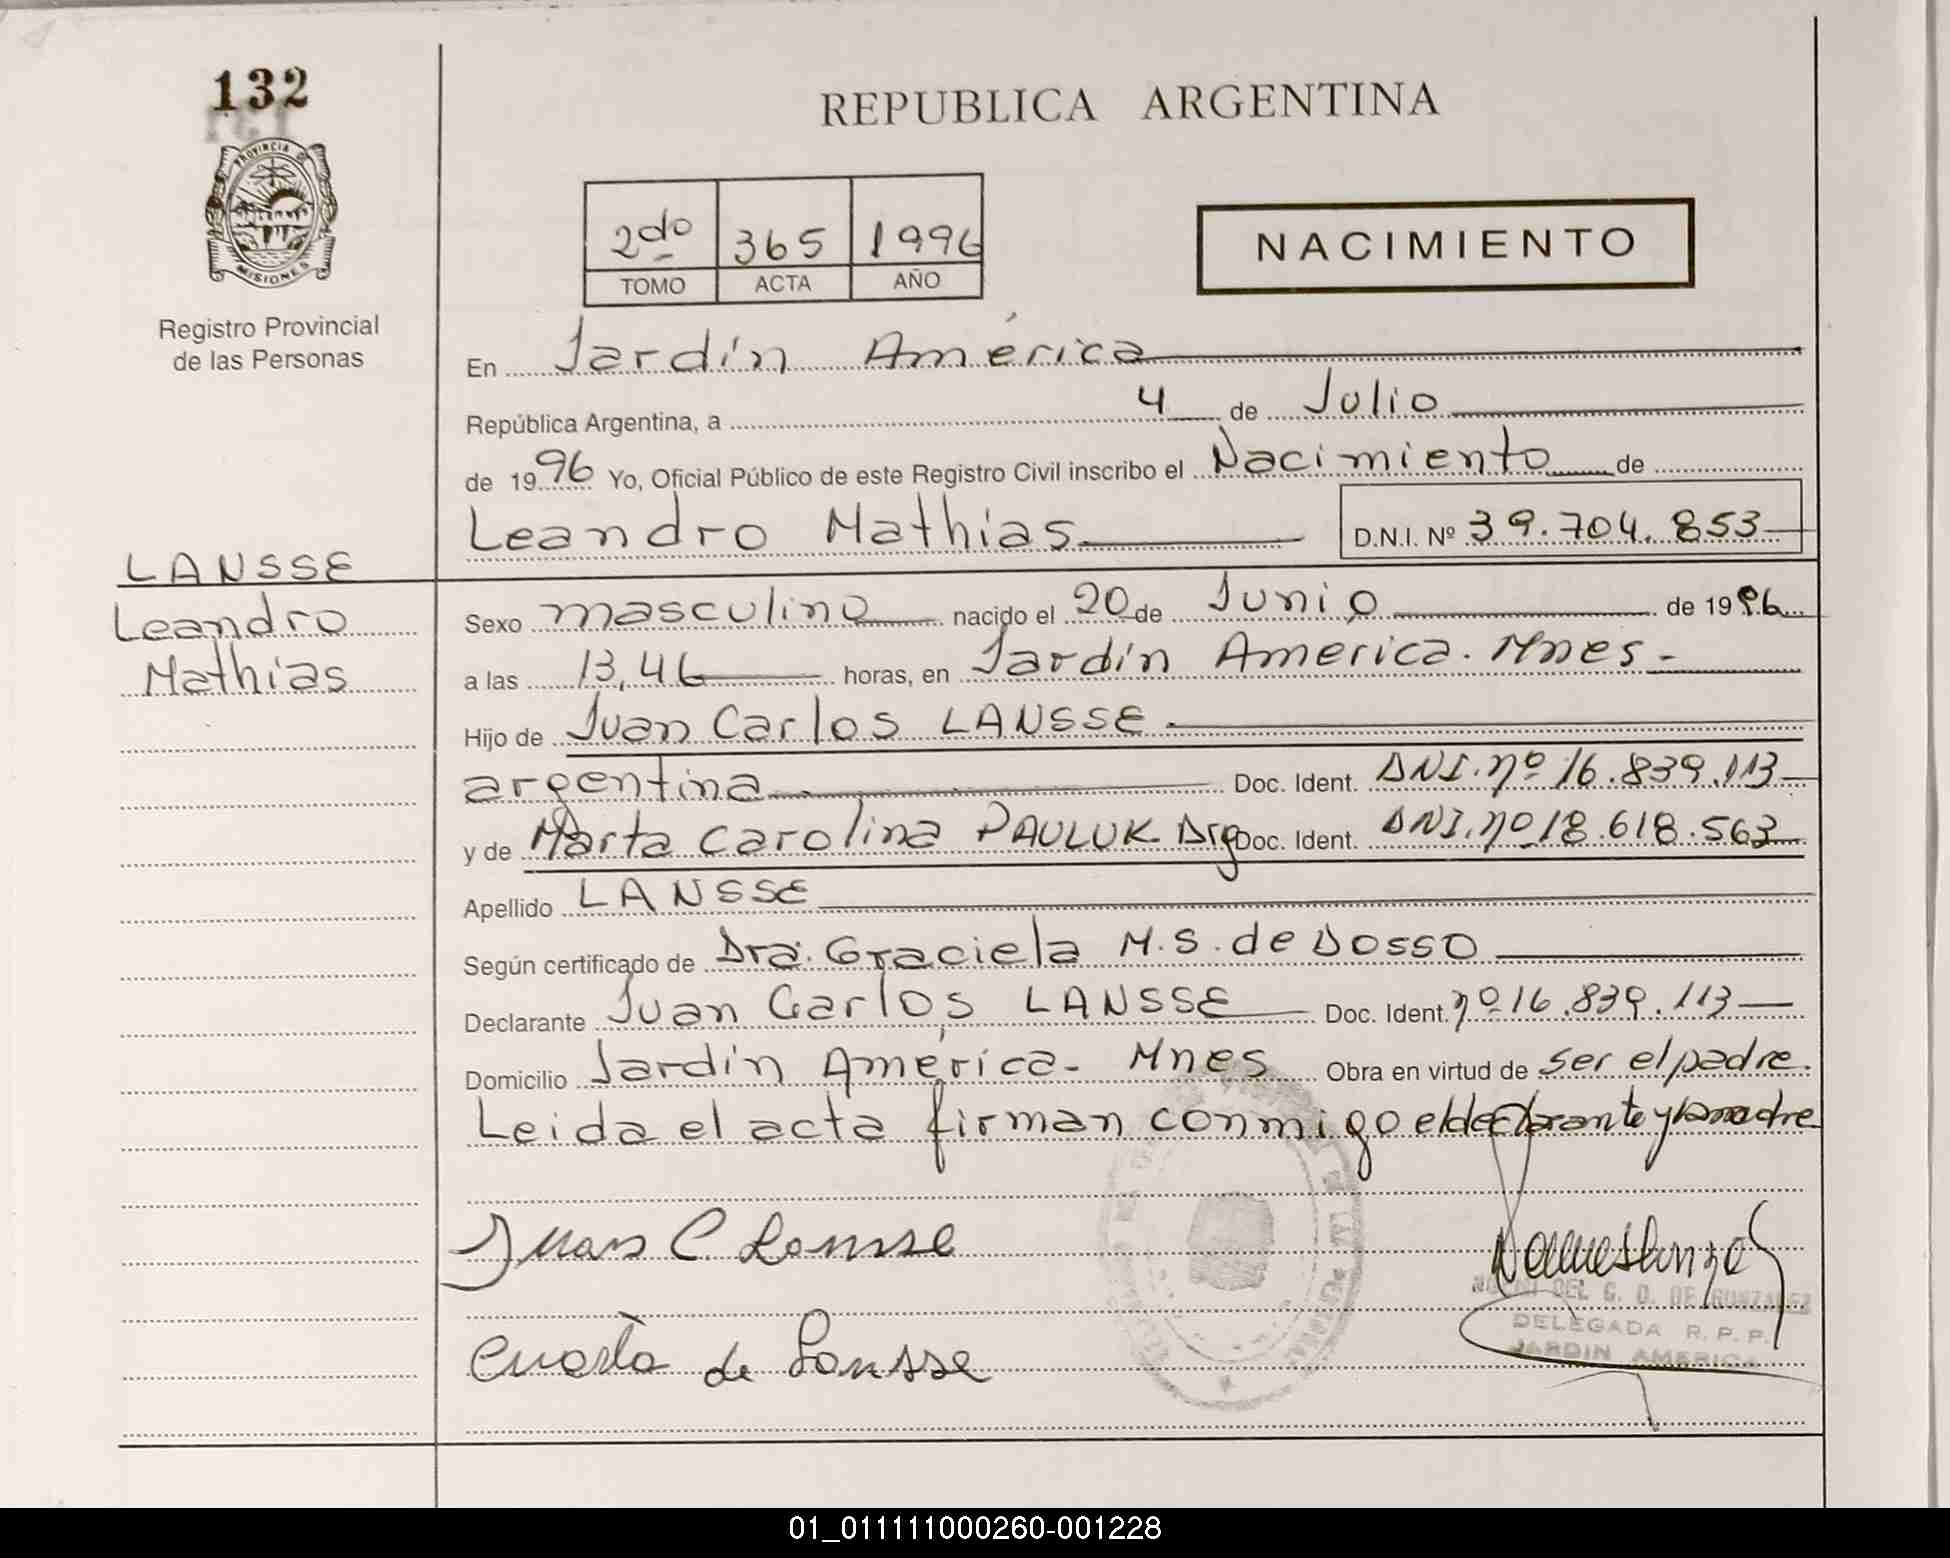 132
PROVINCIA DE
MISIONES
Registro Provincial
de las Personas
REPUBLICA ARGENTINA
2do 365 1996
TOMO ACTA AÑO
NACIMIENTO
En Jardín América
República Argentina, a 4 de Julio
de 1996 Yo, Oficial Público de este Registro Civil inscribo el Nacimiento de
Leandro Mathias D.N.I. Nº 39.704.853
LANSSE
Leandro
Mathias
Sexo masculino nacido el 20 de Junio de 1996
a las 13,46 horas, en Jardín America. Mnes-
Hijo de Juan Carlos LANSSE.
argentina Doc. Ident. DNI. nº 16.839.113
y de Marta Carolina PAULUK Arg Doc. Ident. DNI. nº 18.618.563
Apellido LANSSE
Según certificado de Dra. Graciela M.S. de DOSSO
Declarante Juan Carlos LANSSE Doc. Ident. nº 16.839.113
Domicilio Jardín América- Mnes Obra en virtud de ser el padre.
Leida el acta firman conmigo el declarante y la madre
Juan C. Lansse
de Lansse
DEL C. D. DE GONZALEZ
DELEGADA R.P.P.
JARDIN AMERICA
01_011111000260-001228